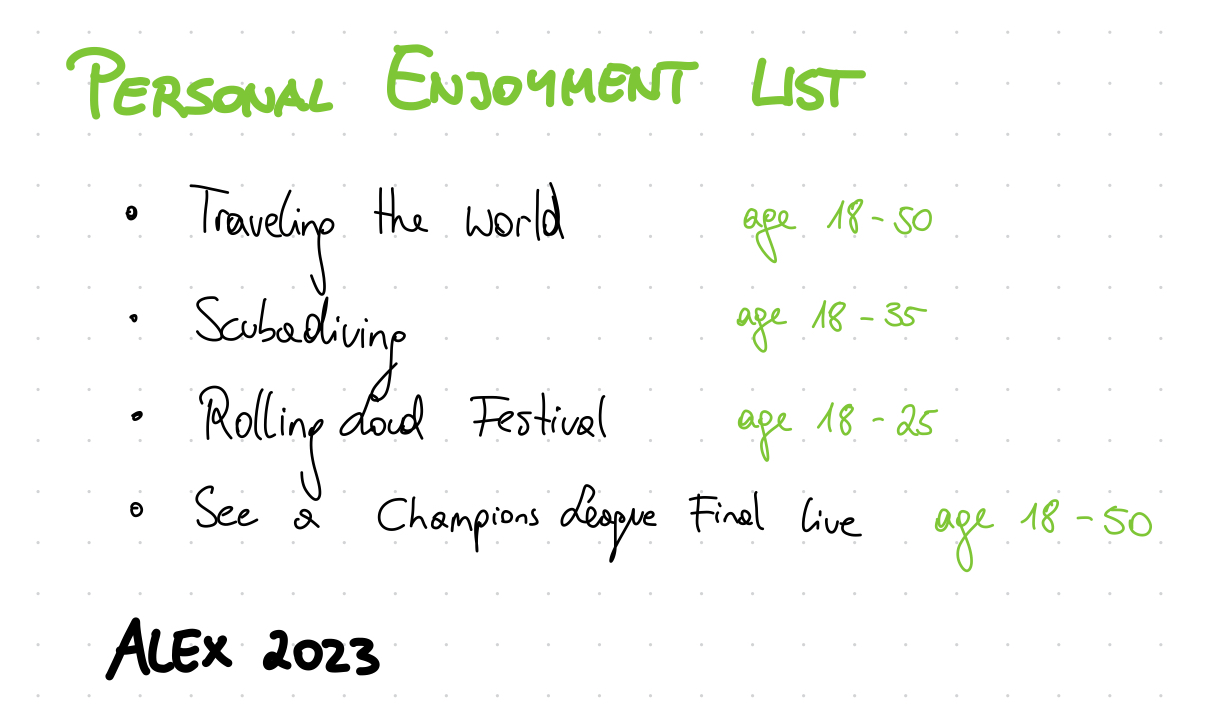 PERSONAL ENJOYMENT LIST
• Traveling the world age 18-50
• Scubadiving age 18-35
• Rolling Loud Festival age 18-25
• See a Champions League Final live age 18-50
ALEX 2023